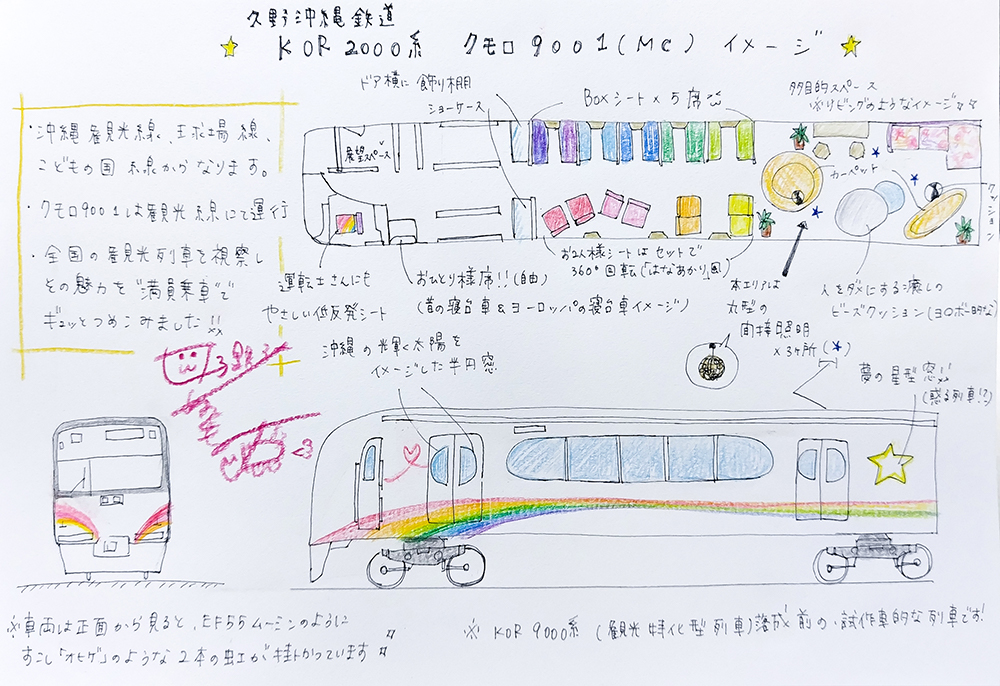 久野沖縄鉄道
KOR2000系 クモロ9001(Mc) イメージ
・沖縄観光線、王求場線、
こどもの国線からなります。
・クモロ9001は観光線にて運行
・全国の観光列車を視察し
その魅力を"満員乗車"で
ギュッとつめこみました!!
ドア横に飾り棚
ショーケース
Boxシート×5席
多目的スペース
※リビングのようなイメージ
展望スペース
カーペット
クッション
運転士さんにも
やさしい低反発シート
おひとり様席!!(自由)
(昔の寝台車&ヨーロッパの寝台車イメージ)
お2人様シートはセットで
360°回転(「はなあかり」風)
本エリアは
丸型の
間接照明
×3ヶ所(★)
人をダメにする癒しの
ビーズクッション(ヨギボー的な)
沖縄の輝く太陽を
イメージした半円窓
夢の星型窓!!
(惑る列車!?)
※車両は正面から見ると、EF55ムーミンのように
すこし「オヒゲ」のような2本の虹が掛かっています
※ KOR 9000系 (観光特化型列車)落成前の、試作車的な列車です!